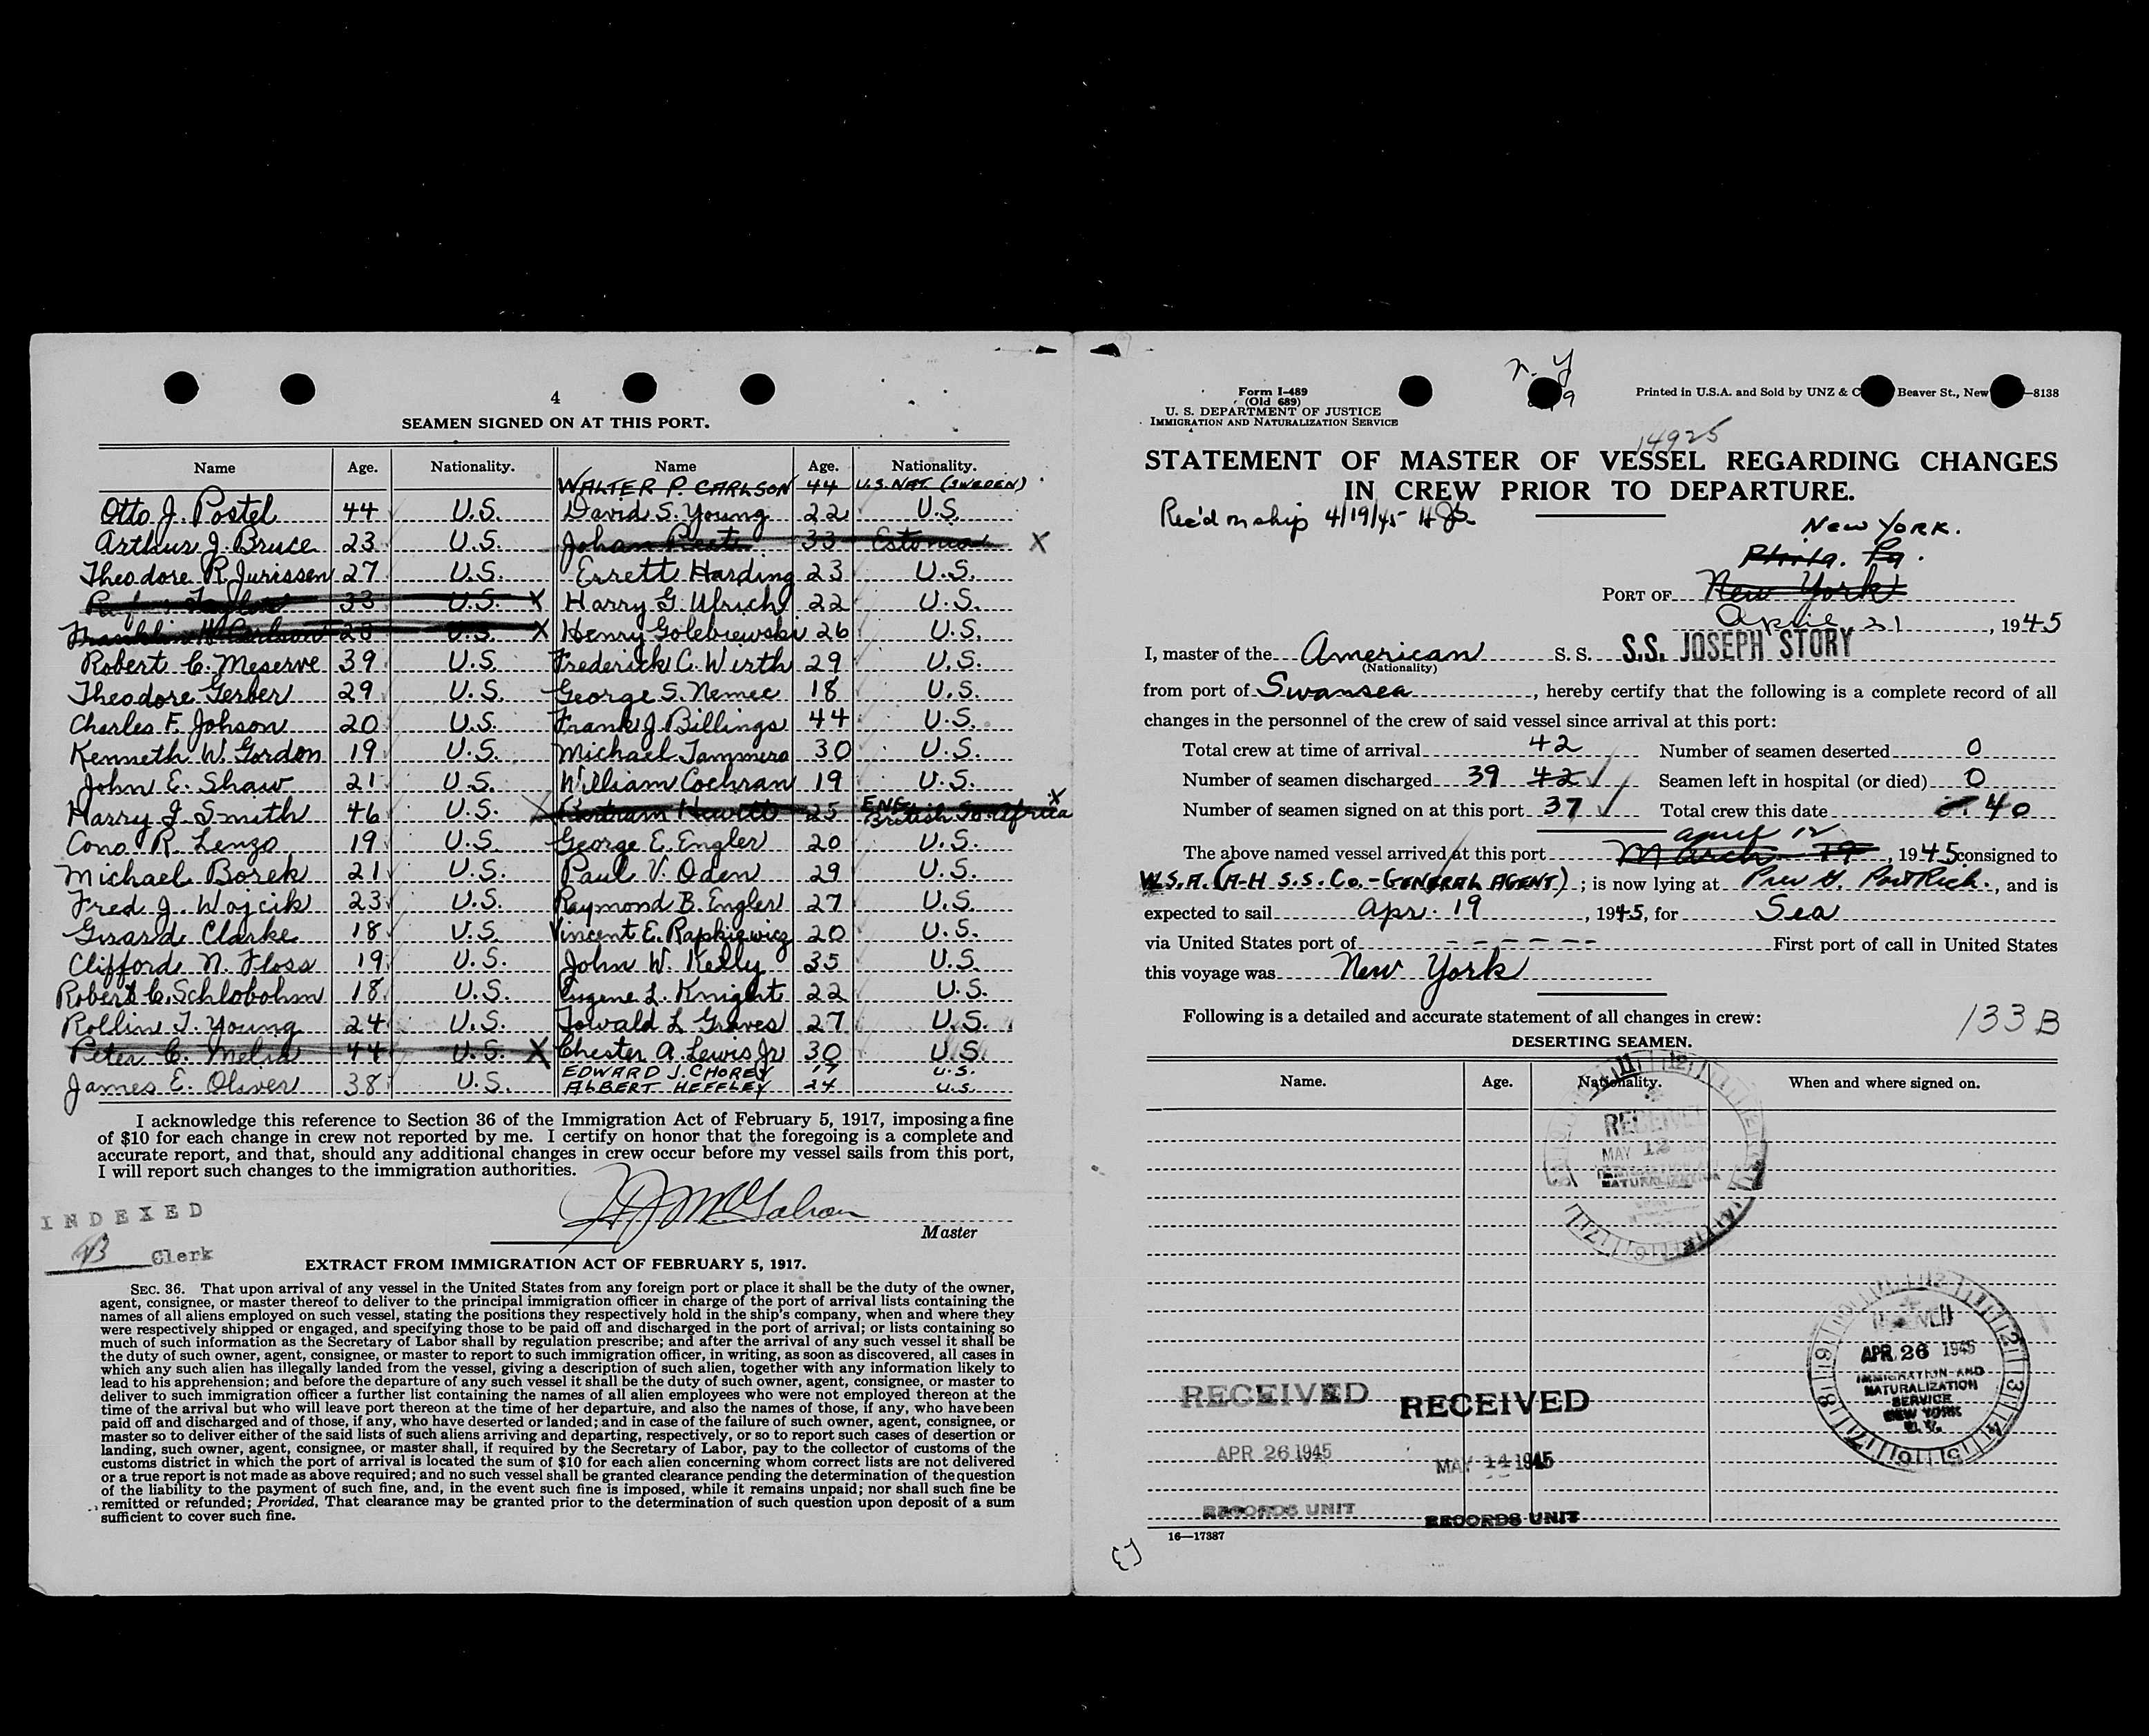 4
SEAMEN SIGNED ON AT THIS PORT.
Name Age. Nationality. Name Age. Nationality.
WALTER P. CARLSON 44 U.S. NAT. (SWEDEN)
Otto J. Postel 44 U.S. David S. Young 22 U.S.
Arthur J. Bruce 23 U.S. Johan 33 Estonia X
Theodore R. Jurissen 27 U.S. Errett Harding 23 U.S.
Taylor 33 U.S. X Harry G. Ulrich 22 U.S.
Franklin W. Carlson 20 U.S. X Henry Golebiewski 26 U.S.
Robert C. Meserve 39 U.S. Frederick C. Wirth 29 U.S.
Theodore Gerber 29 U.S. George S. Nemec 18 U.S.
Charles F. Johson 20 U.S. Frank J. Billings 44 U.S.
Kenneth W. Gordon 19 U.S. Michael Tammero 30 U.S.
John E. Shaw 21 U.S. William Cochran 19 U.S.
Harry J. Smith 46 U.S. X Bertram Hewitt 25 ENG. British So. Africa X
Cono R. Lenzo 19 U.S. George E. Engler 20 U.S.
Michael Borek 21 U.S. Paul V. Oden 29 U.S.
Fred J. Wojcik 23 U.S. Raymond B. Engler 27 U.S.
Girard Clarke 18 U.S. Vincent E. Rapkiewicz 20 U.S.
Clifford N. Floss 19 U.S. John W. Kelly 35 U.S.
Robert C. Schlobohm 18 U.S. Eugene L. Knight 22 U.S.
Rollin T. Young 24 U.S. Towald L Graves 27 U.S.
Peter C. Melia 44 U.S. X Chester A. Lewis Jr 30 U.S.
EDWARD J. CHOREY 17 U.S.
James E. Oliver 38 U.S. ALBERT HEFFLEY 24 U.S.
I acknowledge this reference to Section 36 of the Immigration Act of February 5, 1917, imposing a fine
of $10 for each change in crew not reported by me. I certify on honor that the foregoing is a complete and
accurate report, and that, should any additional changes in crew occur before my vessel sails from this port,
I will report such changes to the immigration authorities.
McGahan
Master
INDEXED
Clerk
EXTRACT FROM IMMIGRATION ACT OF FEBRUARY 5, 1917.
SEC. 36. That upon arrival of any vessel in the United States from any foreign port or place it shall be the duty of the owner,
agent, consignee, or master thereof to deliver to the principal immigration officer in charge of the port of arrival lists containing the
names of all aliens employed on such vessel, stating the positions they respectively hold in the ship's company, when and where they
were respectively shipped or engaged, and specifying those to be paid off and discharged in the port of arrival; or lists containing so
much of such information as the Secretary of Labor shall by regulation prescribe; and after the arrival of any such vessel it shall be
the duty of such owner, agent, consignee, or master to report to such immigration officer, in writing, as soon as discovered, all cases in
which any such alien has illegally landed from the vessel, giving a description of such alien, together with any information likely to
lead to his apprehension; and before the departure of any such vessel it shall be the duty of such owner, agent, consignee, or master to
deliver to such immigration officer a further list containing the names of all alien employees who were not employed thereon at the
time of the arrival but who will leave port thereon at the time of her departure, and also the names of those, if any, who have been
paid off and discharged and of those, if any, who have deserted or landed; and in case of the failure of such owner, agent, consignee, or
master so to deliver either of the said lists of such aliens arriving and departing, respectively, or so to report such cases of desertion or
landing, such owner, agent, consignee, or master shall, if required by the Secretary of Labor, pay to the collector of customs of the
customs district in which the port of arrival is located the sum of $10 for each alien concerning whom correct lists are not delivered
or a true report is not made as above required; and no such vessel shall be granted clearance pending the determination of the question
of the liability to the payment of such fine, and, in the event such fine is imposed, while it remains unpaid; nor shall such fine be
remitted or refunded; Provided, That clearance may be granted prior to the determination of such question upon deposit of a sum
sufficient to cover such fine.
N.Y
Form I-489
(Old 689)
U. S. DEPARTMENT OF JUSTICE
IMMIGRATION AND NATURALIZATION SERVICE
Printed in U.S.A. and Sold by UNZ & C Beaver St., New —8138
14925
STATEMENT OF MASTER OF VESSEL REGARDING CHANGES
IN CREW PRIOR TO DEPARTURE.
Rec'd on ship 4/19/45
NEW YORK.
Phila. Pa.
PORT OF New York
April 21, 1945
I, master of the American S. S. S.S. JOSEPH STORY
(Nationality)
from port of Swansea, hereby certify that the following is a complete record of all
changes in the personnel of the crew of said vessel since arrival at this port:
Total crew at time of arrival 42 Number of seamen deserted 0
Number of seamen discharged 39 42 Seamen left in hospital (or died) 0
Number of seamen signed on at this port 37 Total crew this date 40
April 12
The above named vessel arrived at this port March 19, 1945 consigned to
W.S.A. (A-H S.S. Co. - GENERAL AGENT); is now lying at Pier G. Port Rich., and is
expected to sail Apr. 19, 1945, for Sea
via United States port of - - - - - - First port of call in United States
this voyage was New York
Following is a detailed and accurate statement of all changes in crew:
133 B
DESERTING SEAMEN.
Name. Age. Nationality. When and where signed on.
RECEIVED
MAY 12
NATURALIZATION
APR 26 1945
IMMIGRATION AND
NATURALIZATION
SERVICE
NEW YORK
N. Y.
RECEIVED RECEIVED
APR 26 1945 MAY 14 1945
RECORDS UNIT RECORDS UNIT
16—17387